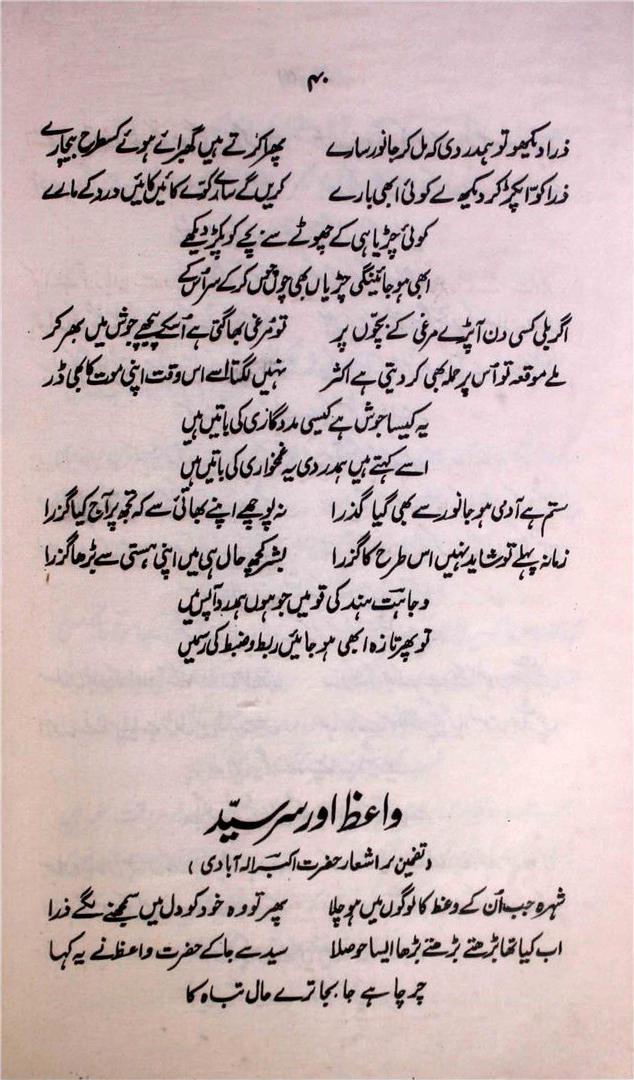 ۴۰
ذرا دیکھو تو ہمدردی کہ مل کر جانور سارے پھرا کرتے ہیں گھبرائے ہوئے کسطرح بیچارے
ذرا کوّا پکڑ کر دیکھ لے کوئی ابھی بارے کریں گے سارے کوّے کائیں کائیں درد کے مارے
کوئی چڑیا ہی کے چھوٹے سے بچے کو پکڑ دیکھے
ابھی ہو جائینگی چڑیاں بھی چوں چوں کرکے سر اُس کے
اگر بلی کسی دن آپڑے مرغی کے بچّوں پر تو مُرغی بھاگتی ہے اُسکے پیچھے جوش میں بھر کر
ملے موقعہ تو اُس پر حملہ بھی کر دیتی ہے اکثر نہیں لگتا اسے اس وقت اپنی موت کا بھی ڈر
یہ کیسا جوش ہے کیسی مددگاری کی باتیں ہیں
اسے کہتے ہیں ہمدردی یہ غمخواری کی باتیں ہیں
ستم ہے آدمی ہو جانور سے بھی گیا گذرا نہ پوچھے اپنے بھائی سے کہ تجھ پر آج کیا گزرا
زمانہ پہلے تو شاید نہیں اس طرح کا گزرا بشر کچھ حال ہی میں اپنی ہستی سے بڑھا گزرا
وجاہت ہند کی قومیں جو ہوں ہمدرد آپس میں
تو پھر تازہ ابھی ہو جائیں ربط و ضبط کی رسمیں
واعظ اور سرسیّد
(تضمین بر اشعار حضرت اکبر الہ آبادی)
شہرہ جب اُن کے وعظ کا لوگوں میں ہو چلا پھر تو وہ خود کو دل میں سمجھنے لگے خدا
اب کیا تھا بڑھتے بڑھتے بڑھا ایسا حوصلا سید سے جا کے حضرت واعظ نے یہ کہا
چرچا ہے جا بجا ترے حال تباہ کا